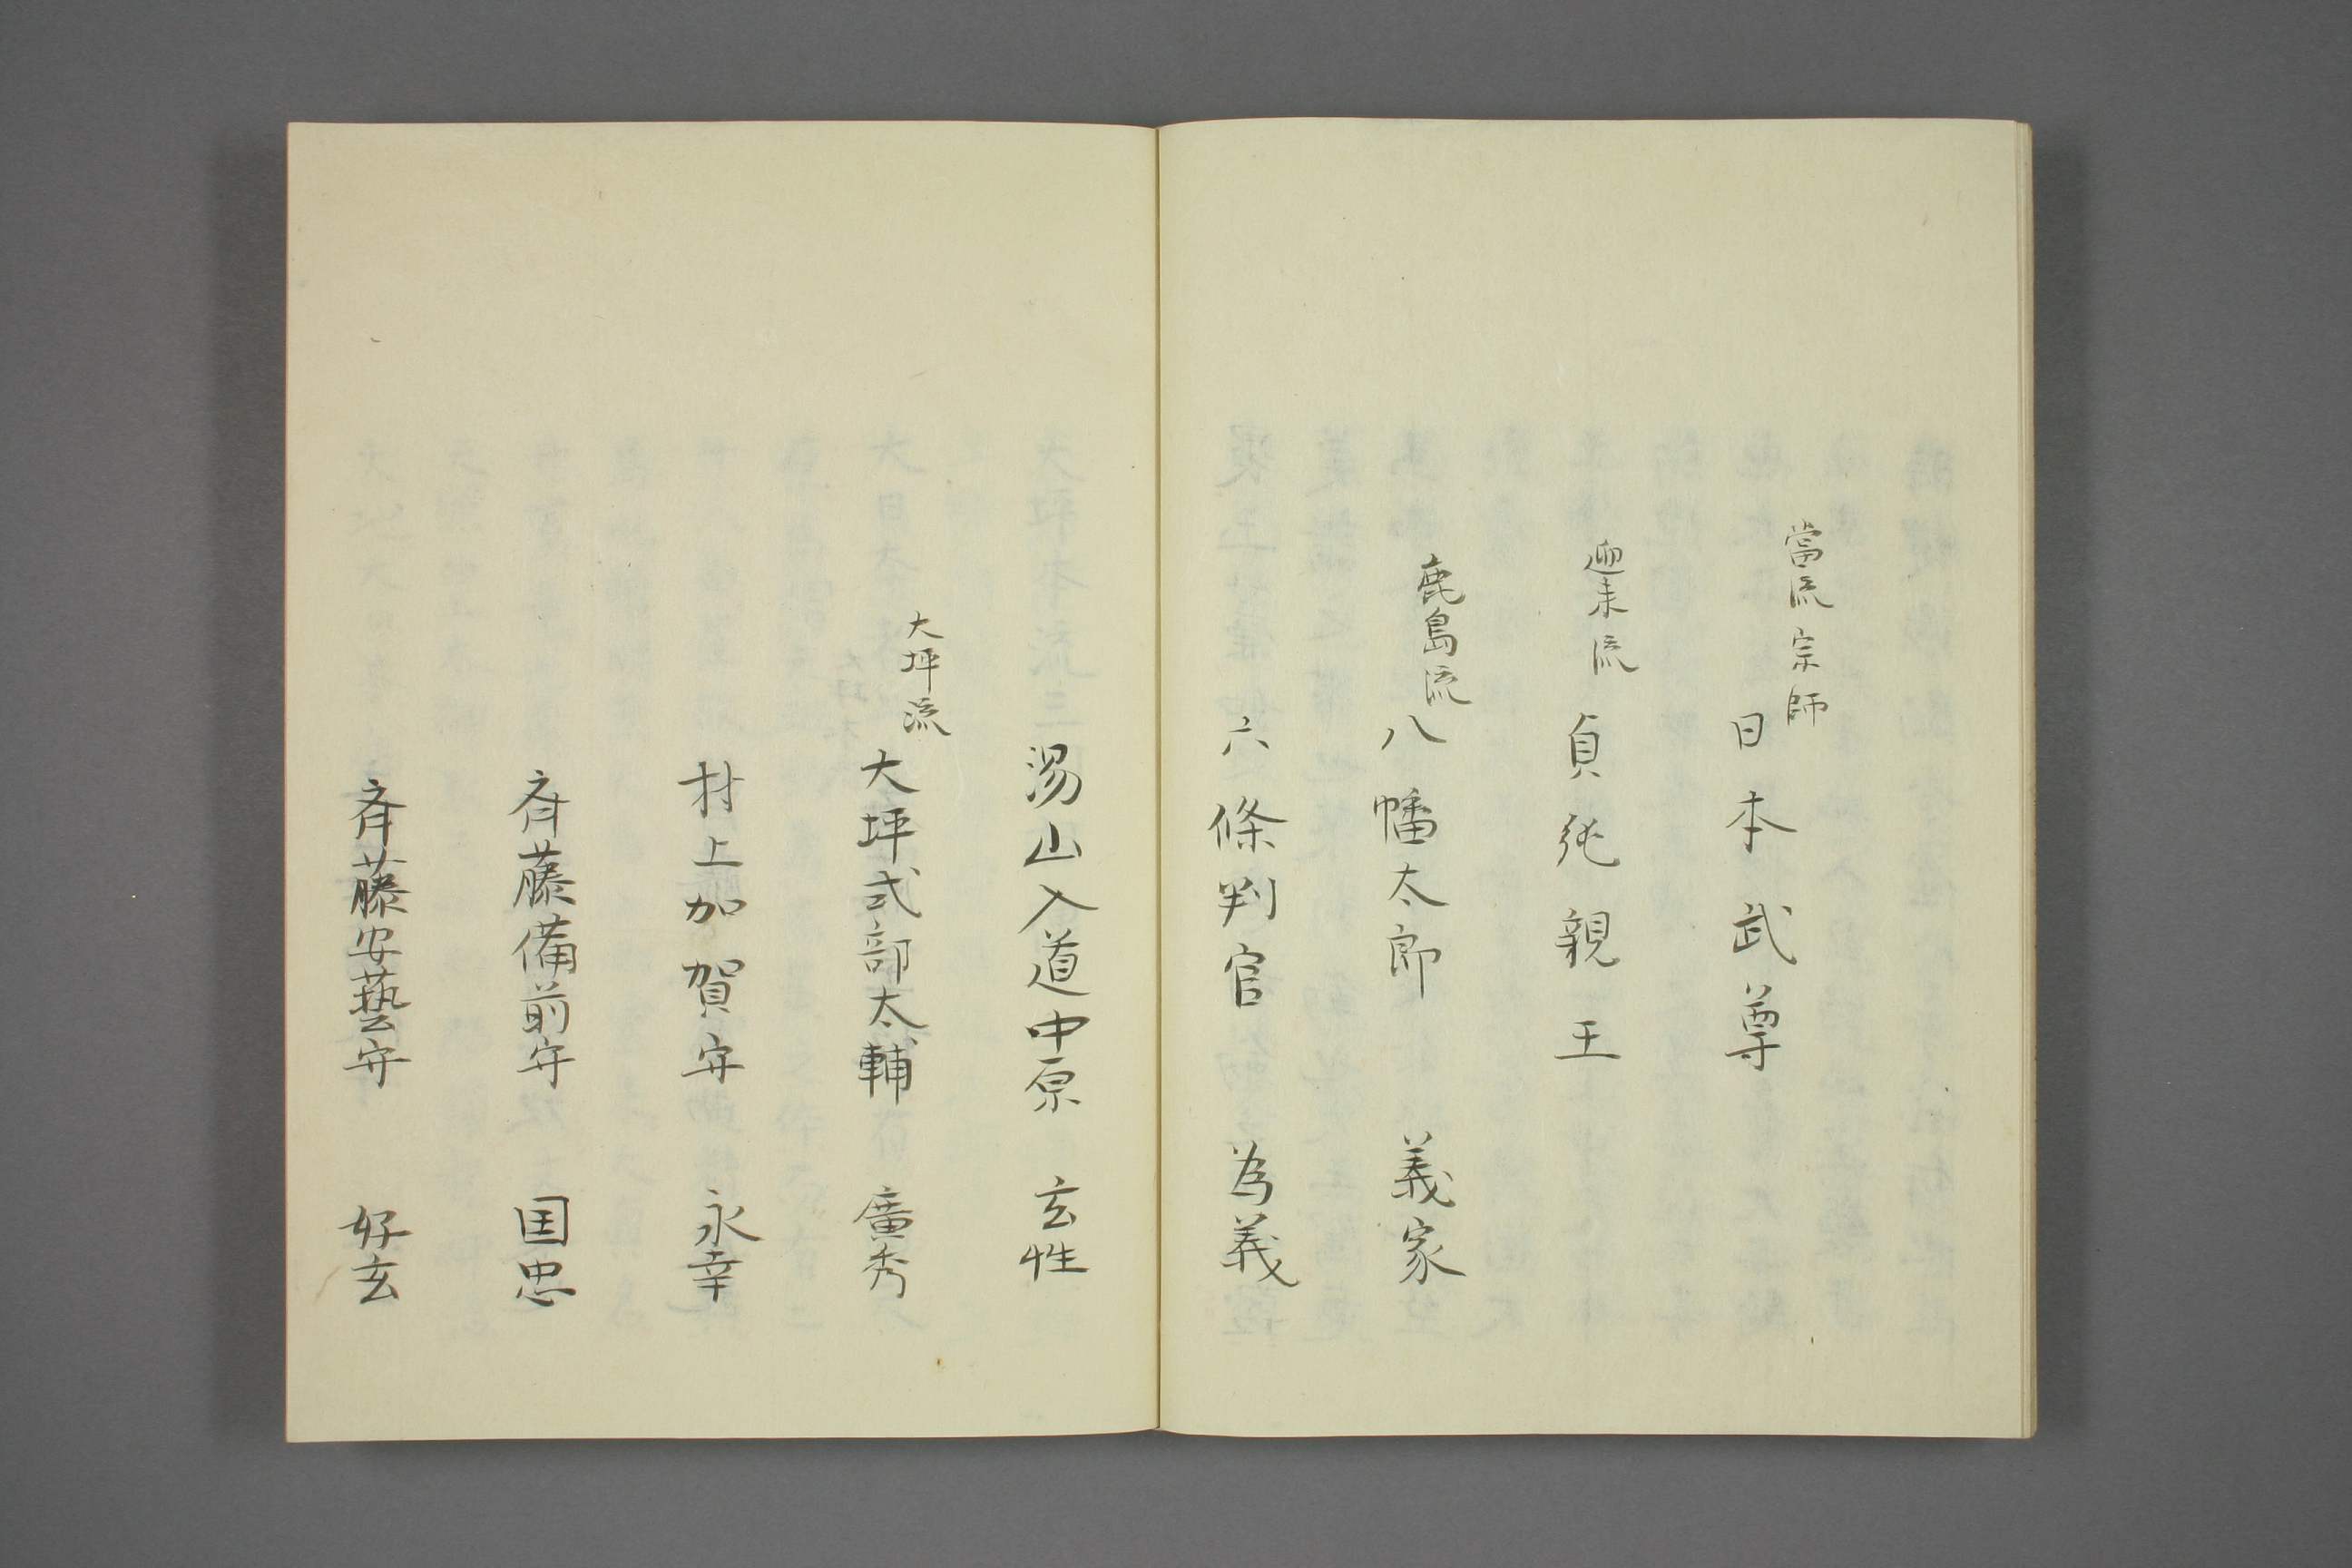 當流宗師
日本武尊
迦耒流
貞純親王
鹿島流
八幡太郎 義家
六條判官 為義
湯山入道中原 玄性
大坪流
大坪式部太輔 廣秀
村上加賀守 永幸
斉藤備前守 国忠
斉藤安藝守 好玄